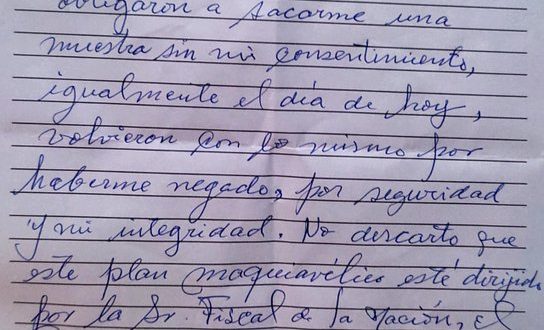 obligaron a sacarme una
muestra sin mi consentimiento,
igualmente el día de hoy,
volvieron con lo mismo por
haberme negado, por seguridad
y mi integridad. No descarto que
este plan maquiavélico esté dirigido
por la Sr. Fiscal de la Nación, el